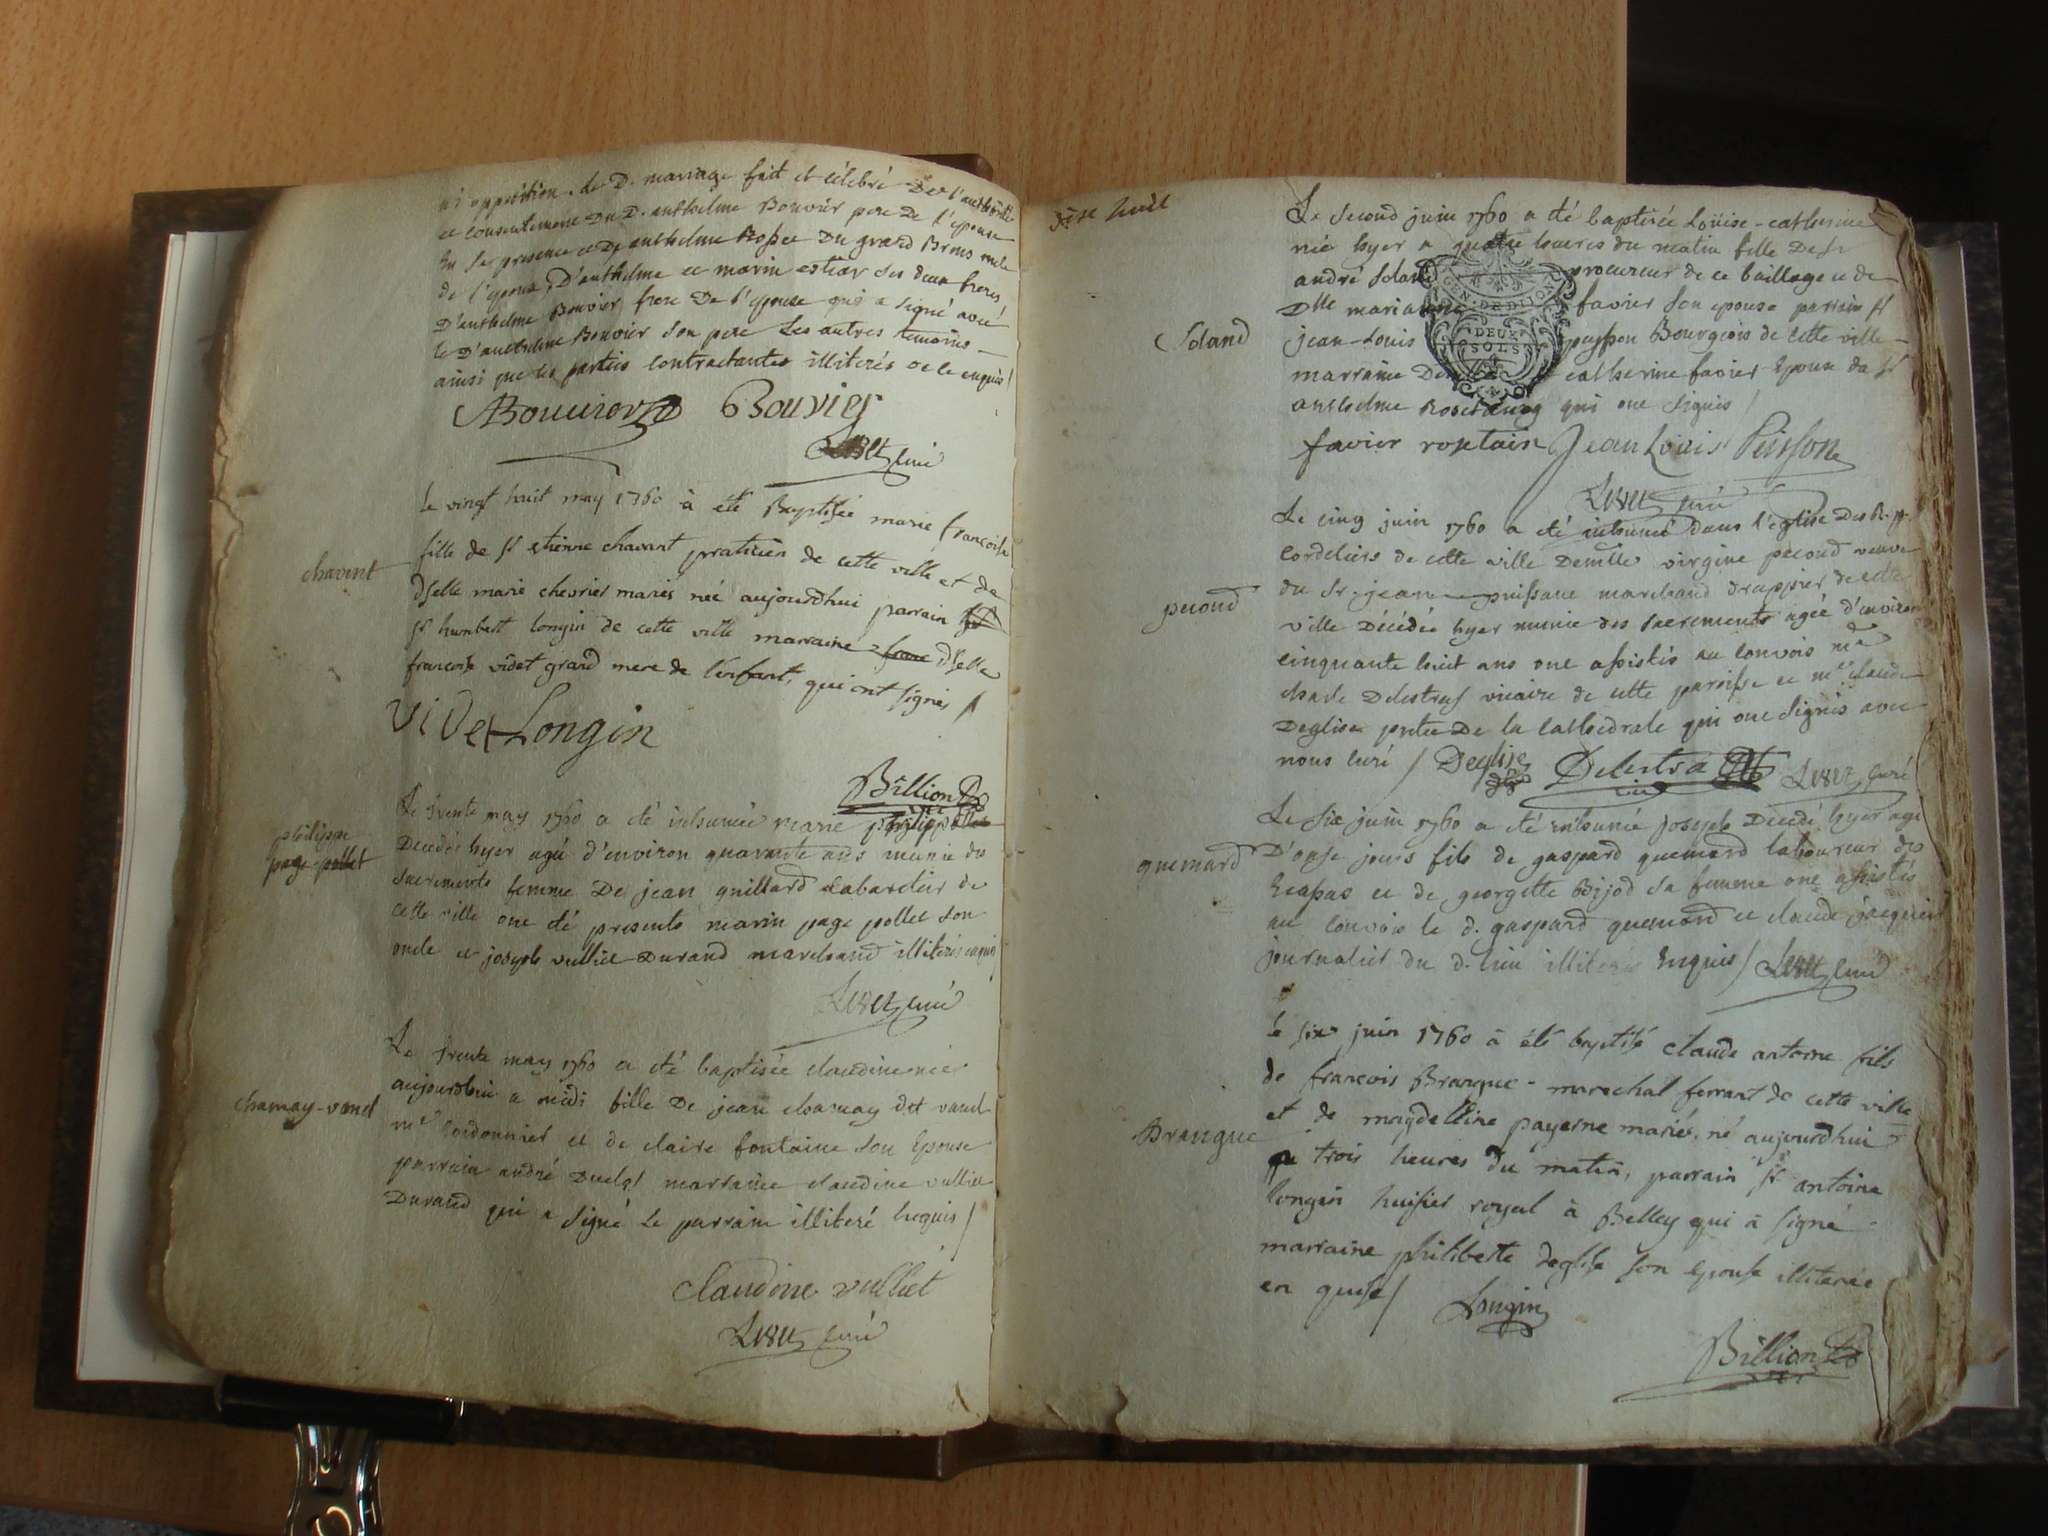 ni opposition. le D. mariage fait et célébré De l'authorité
et consentement Du D. anthelme Bouvier pere De l'epouse
En sa presence et De anthelme Rosset Du grand Brens oncle
de l'epoux, D'anthelme et marin estier ses deux freres,
D'anthelme Bouvier frere De l'epouse qui a signé avec
le D'anthelme Bouvier son pere Les autres temoins
ainsi que les parties contractantes illiterés de ce enquis /
ABouvier Bouvier
curé
chavent
le vingt huit may 1760 à été Baptisée marie françoise
fille de Sr etienne chavant praticien de cette ville et de
dselle marie chevrier mariés née aujourdhui parrain
Sr humbert longin de cette ville marraine dselle
françoise videt grand mere de l'enfant, qui ont signés /
ViDet Longin
Billion
vire
philippe
page pollet
Le trente may 1760 a été inhumée marie philippe
Decedée hyer agée d'environ quarante ans munie des
sacrements femme De jean guillard Labardier de
cette ville ont été presents marin page pollet son
oncle et joseph vulliet Durand marchand illiterés enquis /
curé
chamay-vand
Le trente may 1760 a été baptisée claudine née
aujourdhui a midi fille De jean chamay dit vand
me cordonnier et de claire fontaine son Epouse
parrain andré Duclos marraine claudine vulliet
Durand qui a signé Le parrain illiteré Enquis /
claudine vulliet
curé
dixe huit
Soland
Le Second juin 1760 a été baptisée Loüise-catherine
née hyer a quatre heures du matin fille De Sr
andré Soland procureur de ce baillage et de
Dlle marianne favier son epouse parrain Sr
jean-Louis peysson Bourgeois de cette ville
marraine Demlle catherine favier Epouse du Sr
anthelme Rosetaing qui ont Signés /
GEN. DE DIJON
DEUX
SOLS
favier rostain Jean Louis Peisson
curé
pecond
Le cinq juin 1760 a été inhumée dans l'église Des R. pp.
cordeliers de cette ville Demlle virgine pecond veuve
du Sr. jean puissant marchand drappier de cette
ville Décédée hyer munie des sacrements agée d'environ
cinquante huit ans ont assistés au convois mre
charle Delestras vicaire de cette paroisse et mre claude
Deglise pretre De la cathedrale qui ont Signés avec
nous curé / Deglise Delestra curé
quemard
Le Six juin 1760 a été inhumée joseph Decedé hyer agé
D'onse jours fils de gaspard quemard laboureur des
Ecassas et de georgette Bijod sa femme ont assistés
au convois le d. gaspard quemard et claude jacquin
journalier du d. lieu illiterés Enquis / curé
Brangue
le six juin 1760 à été baptisé claude antoine fils
de françois Brangue - marechal ferrant de cette ville
et de magdelleine payerne mariés, né aujourdhui
a trois heures du matin, parrain Sr antoine
longin huissier royal à Belley qui à signé
marraine philiberte deglise son epouse illiterée
en quise / Longin
Billion
vire